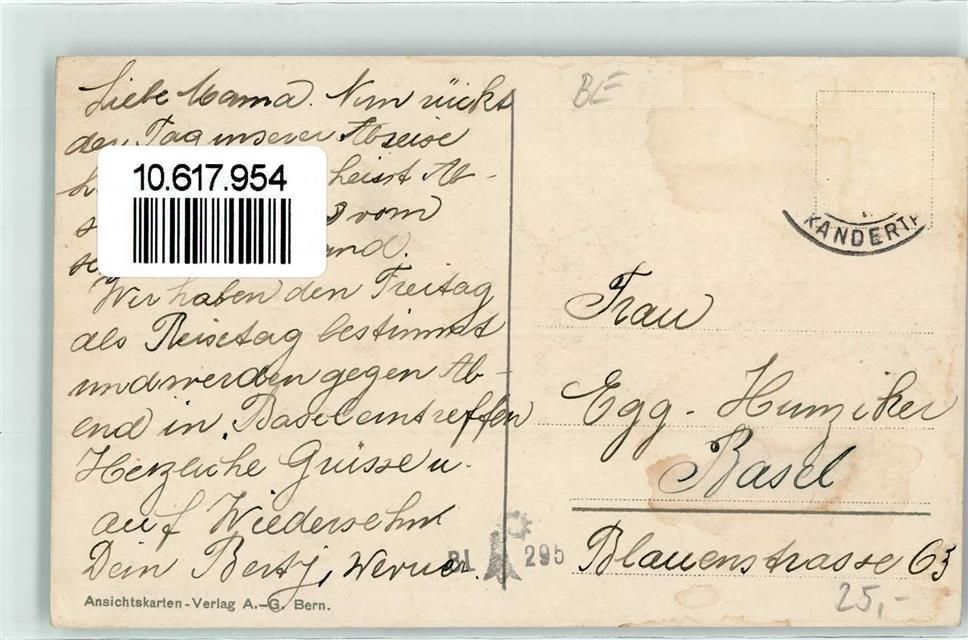 Liebe Mama. Nun rückt
der Tag unserer Abreise
heisst Ab-
vom
Wir haben den Freitag
als Reisetag bestimmt
und werden gegen Ab-
end in Basel eintreffen
Herzliche Grüsse u.
auf Wiedersehn
Dein Berty, Werner
Ansichtskarten-Verlag A.-G. Bern.
10.617.954
BE
KANDERT
Frau
Egg-Hunziker
Basel
Blauenstrasse 63
BI 295
25,-